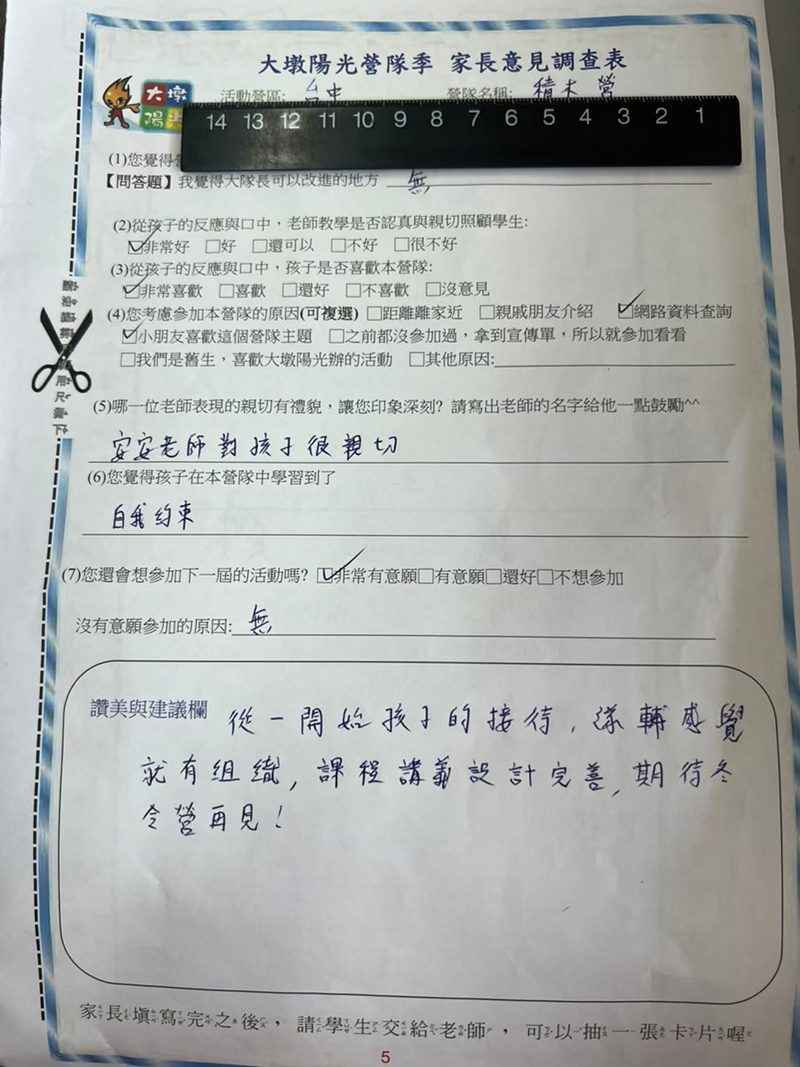 大墩陽光營隊季 家長意見調查表
大墩
陽
活動營區: 台中 營隊名稱: 積木營
14 13 12 11 10 9 8 7 6 5 4 3 2 1
(1)您覺得
【問答題】我覺得大隊長可以改進的地方 無
(2)從孩子的反應與口中，老師教學是否認真與親切照顧學生:
☑非常好 □好 □還可以 □不好 □很不好
(3)從孩子的反應與口中，孩子是否喜歡本營隊:
☑非常喜歡 □喜歡 □還好 □不喜歡 □沒意見
(4)您考慮參加本營隊的原因(可複選) □距離離家近 □親戚朋友介紹 ☑網路資料查詢
☑小朋友喜歡這個營隊主題 □之前都沒參加過，拿到宣傳單，所以就參加看看
□我們是舊生，喜歡大墩陽光辦的活動 □其他原因:
(5)哪一位老師表現的親切有禮貌，讓您印象深刻? 請寫出老師的名字給他一點鼓勵^^
安安老師對孩子很親切
(6)您覺得孩子在本營隊中學習到了
自我約束
(7)您還會想參加下一屆的活動嗎? ☑非常有意願□有意願□還好□不想參加
沒有意願參加的原因: 無
讚美與建議欄 從一開始孩子的接待，隊輔感覺
就有組織，課程講義設計完善，期待冬
令營再見！
家長填寫完之後，請學生交給老師，可以抽一張卡片喔
5